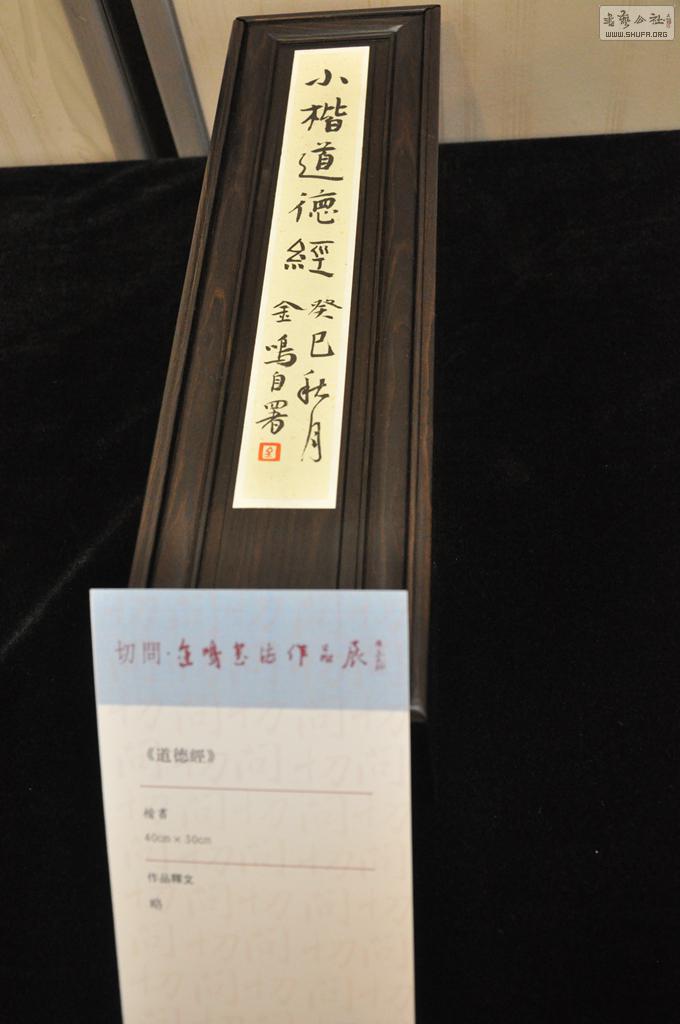 書藝公社
WWW.SHUFA.ORG
小楷道德經
癸巳秋月
金鳴自署
切問·金鳴書法作品展
《道德經》
楷書
40cm×30cm
作品釋文
略